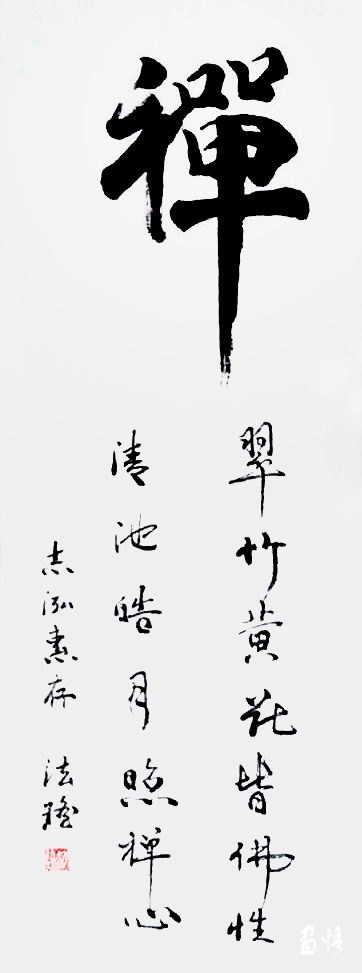 禪
翠竹黄花皆佛性
清池皓月照禅心
志泓惠存 法瑜